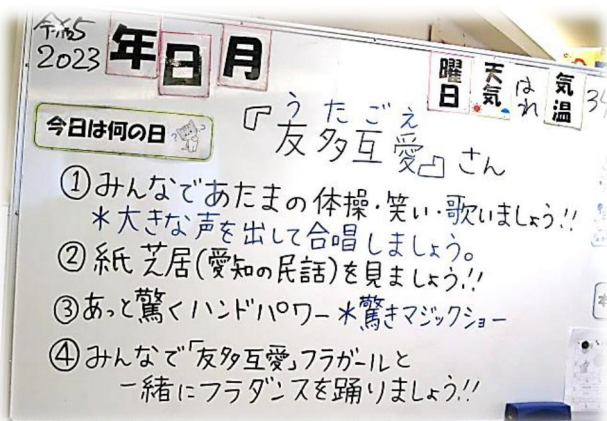 令和5
2023 年 日 月
曜日 天気 はれ 気温 34
今日は何の日
うたごえ
『友多互愛』さん
①みんなであたまの体操・笑い・歌いましょう!!
＊大きな声を出して合唱しましょう。
②紙芝居(愛知の民話)を見ましょう!!
③あっと驚くハンドパワー＊驚きマジックショー
④みんなで「友多互愛」フラガールと
一緒にフラダンスを踊りましょう!!